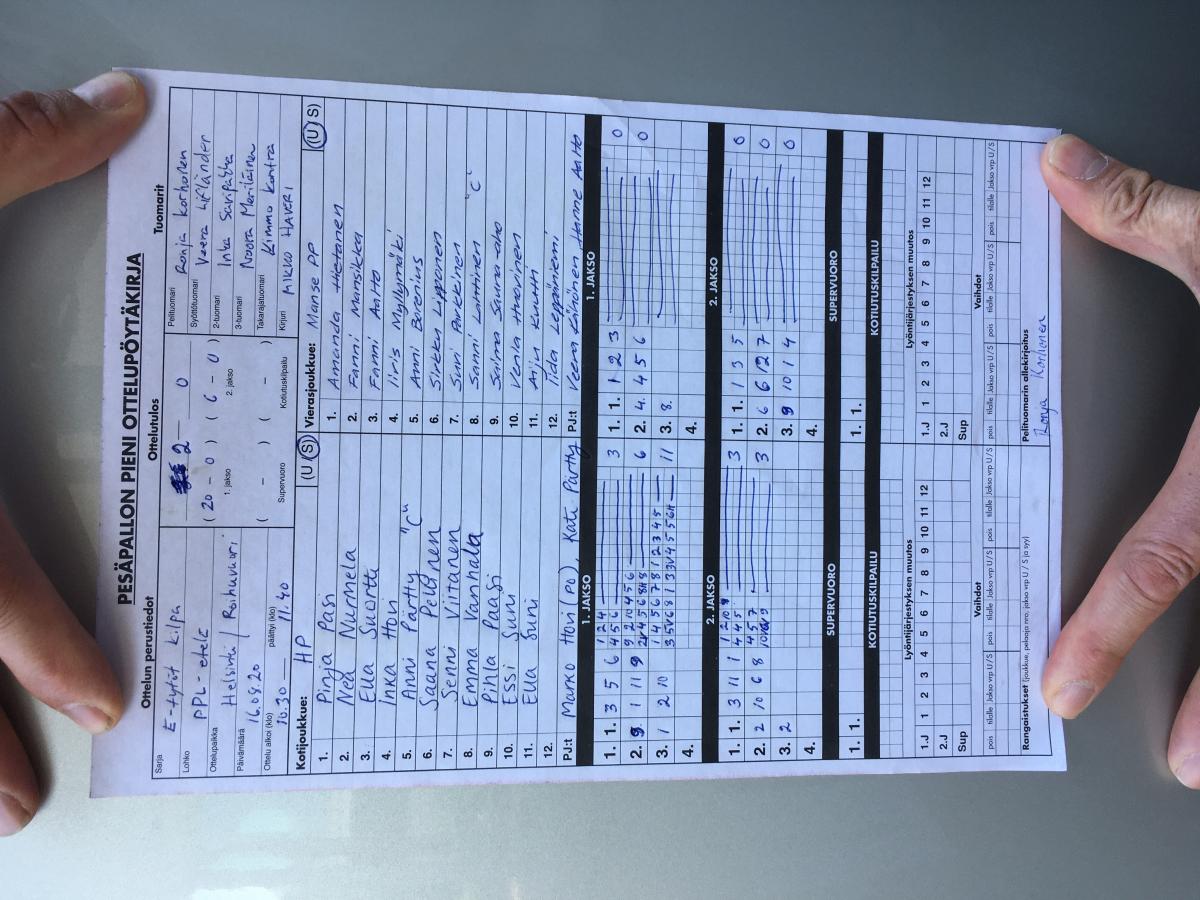 PESÄPALLON PIENI OTTELUPÖYTÄKIRJA
Ottelun perustiedot
Ottelutulos
Tuomarit
Sarja
E-tytöt kilpa
Lohko
PPL-etelä
Ottelupaikka
Helsinki / Roihuvuori
Päivämäärä
16.08.20
Ottelu alkoi (klo)
10.30
päättyi (klo)
11.40
2 – 0
( 20 – 0 ) ( 6 – 0 )
1. jakso 2. jakso
( – ) ( – )
Supervuoro Kotiutuskilpailu
Pelituomari Ronja Korhonen
Syöttötuomari Veera Lifländer
2-tuomari Inka Saripalka
3-tuomari Noora Meriläinen
Takarajatuomari Kimmo Kontra
Kirjuri Mikko HAVERI
Kotijoukkue: HP (U S)
1. Pinja Pasi
2. Nea Nurmela
3. Ella Suortti
4. Inka Hovi
5. Anni Partty "C"
6. Saana Peltonen
7. Senni Viitanen
8. Emma Vanhala
9. Pihla Paasi
10. Essi Suni
11. Ella Suni
12.
PJ:t Marko Hovi (po), Kati Partty
Vierasjoukkue: Manse PP (U S)
1. Amanda Hietanen
2. Fanni Mansikka
3. Fanni Aalto
4. Iiris Myllymäki
5. Anni Borenius
6. Sirkku Lipponen
7. Sini Parkkinen
8. Sanni Luttinen "C"
9. Saima Sauna-aho
10. Venla Huovinen
11. Arjin Knutti
12. Iida Leppäniemi
PJ:t Veera Könönen Hanne Aalto
1. JAKSO
1. 1. 3 5 6 1 2 4 4 5 6 3
2. 9 1 11 9 6
3. 1 2 10 1 4 5 6 7 8 1 2 3 4 5 11
4.
1. JAKSO
1. 1. 1 2 3 0
2. 4. 4 5 6 0
3. 8.
4.
2. JAKSO
1. 1. 3 11 1 4 4 5 3
2. 2 10 6 8 4 5 7 3
3. 2
4.
2. JAKSO
1. 1. 1 3 5 0
2. 6 6 12 7 0
3. 9 10 1 4 0
4.
SUPERVUORO
1. 1.
SUPERVUORO
1. 1.
KOTIUTUSKILPAILU
KOTIUTUSKILPAILU
Lyöntijärjestyksen muutos
1.J 1 2 3 4 5 6 7 8 9 10 11 12
2.J
Sup
Lyöntijärjestyksen muutos
1.J 1 2 3 4 5 6 7 8 9 10 11 12
2.J
Sup
Vaihdot
pois tilalle Jakso vrp U / S pois tilalle Jakso vrp U / S pois tilalle Jakso vrp U / S
Vaihdot
pois tilalle Jakso vrp U / S pois tilalle Jakso vrp U / S pois tilalle Jakso vrp U / S
Rangaistukset (joukkue, pelaaja nro, jakso vrp U / S ja syy)
Pelituomarin allekirjoitus
Ronja Korhonen